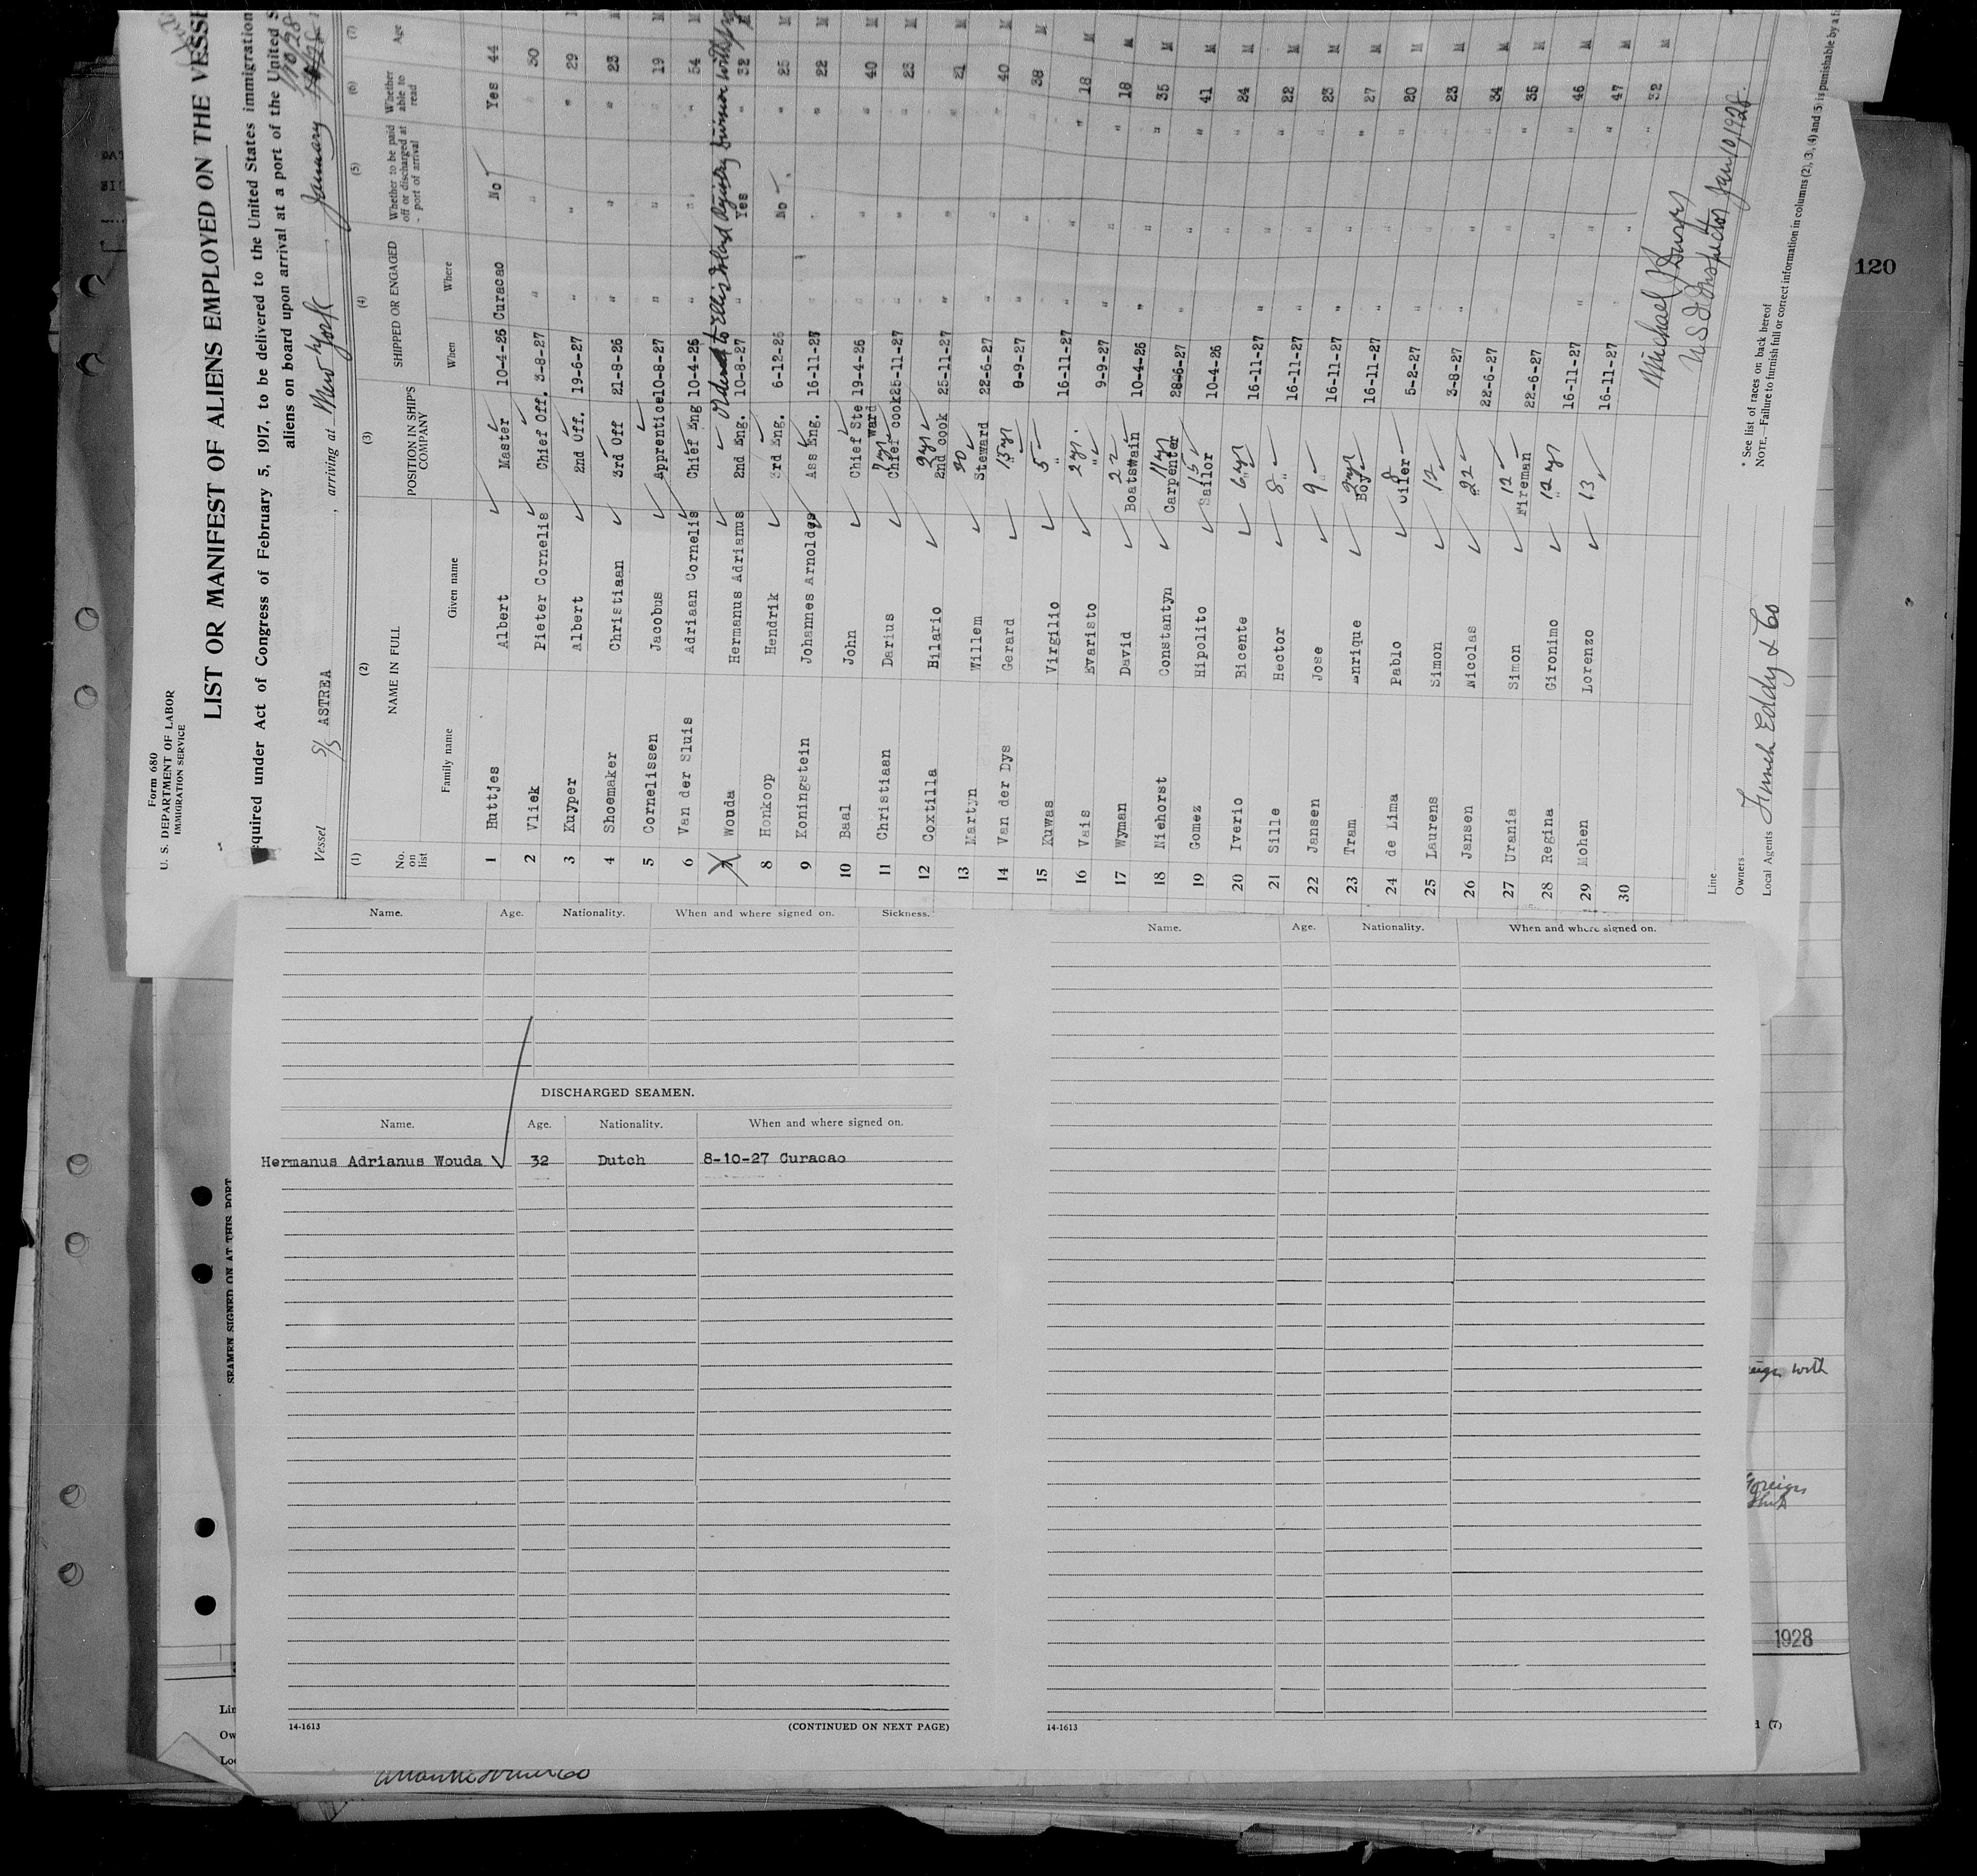 Form 680
U. S. DEPARTMENT OF LABOR
IMMIGRATION SERVICE
LIST OR MANIFEST OF ALIENS EMPLOYED ON THE VESSE
equired under Act of Congress of February 5, 1917, to be delivered to the United States immigration
aliens on board upon arrival at a port of the United S
1/10/28
Vessel S/S ASTREA, arriving at New York January
(1) (2) (3) (4) (5) (6) (7)
No. on list NAME IN FULL POSITION IN SHIP'S COMPANY SHIPPED OR ENGAGED Whether to be paid off or discharged at port of arrival Whether able to read Age
Family name Given name When Where
1 Huttjes Albert Master 10-4-26 Curacao No Yes 44
2 Vliek Pieter Cornelis Chief Off. 3-8-27 " " " 30 M
3 Kuyper Albert 2nd Off. 19-6-27 " " " 29 M
4 Shoemaker Christiaan 3rd Off 21-8-26 " " " 23 M
5 Cornelissen Jacobus Apprentice 10-8-27 " " " 19 M
6 Van der Sluis Adriaan Cornelis Chief Eng 10-4-26 " " " 54 M
Ordered to Ellis Island Registry Division
7 Wouda Hermanus Adrianus 2nd Eng. 10-8-27 " Yes " 32 M
8 Honkoop Hendrik 3rd Eng. 6-12-26 No " 25 M
9 Koningstein Johannes Arnoldes Ass Eng. 16-11-27 " " " 22 M
10 Baal John Chief Ste ward 19-4-26 " " " 40 M
11 Christiaan Darius 7 yr Chief cook 25-11-27 " " " 23 M
12 Coxtilla Bilario 2 yr 2nd cook 25-11-27 " " " 21 M
13 Martyn Willem 20 Steward 22-6-27 " " " 40 M
14 Van der Dys Gerard 15 yr " 9-9-27 " " " 38 M
15 Kuwas Virgilio 5 " 16-11-27 " " " 18 M
16 Vais Evaristo 2 yr " 9-9-27 " " " 18 M
17 Wyman David 22 Boatswain 10-4-26 " " " 35 M
18 Niehorst Constantyn 11 yr Carpenter 28-6-27 " " " 41 M
19 Gomez Hipolito 15 Sailor 10-4-26 " " " 24 M
20 Iverio Bicente 6 yr " 16-11-27 " " " 22 M
21 Sille Hector 8 " 16-11-27 " " " 23 M
22 Jansen Jose 9 " 16-11-27 " " " 27 M
23 Tram Enrique 2 yr Boy 16-11-27 " " " 20 M
24 de Lima Pablo 8 Oiler 5-2-27 " " " 23 M
25 Laurens Simon 12 " 3-8-27 " " " 34 M
26 Jansen Nicolas 22 " 22-6-27 " " " 35 M
27 Urania Simon 12 Fireman 22-6-27 " " " 46 M
28 Regina Gironimo 12 yr " 16-11-27 " " " 47 M
29 Mohen Lorenzo 13 16-11-27 " " " 32 M
30
Michael J
U S I Inspector Jan 10 1928.
Line
Owners
Local Agents Funch Eddy & Co
* See list of races on back hereof
NOTE.—Failure to furnish full or correct information in columns (2), (3), (4) and (5) is punishable by a f
120
Name. Age. Nationality. When and where signed on. Sickness.
DISCHARGED SEAMEN.
Name. Age. Nationality. When and where signed on.
Hermanus Adrianus Wouda 32 Dutch 8-10-27 Curacao
14-1613 (CONTINUED ON NEXT PAGE)
Name. Age. Nationality. When and where signed on.
14-1613
SEAMEN SIGNED ON AT THIS PORT
eign with
Foreign
1928
(7)
Lin
Ow
Loc